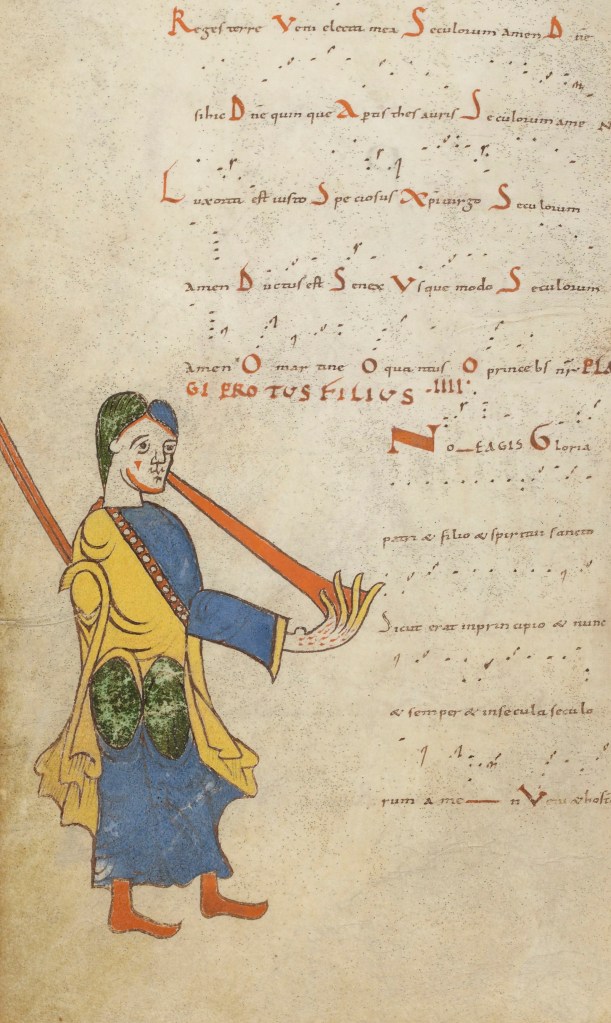 Reges terre Veni electa mea Seculorum amen D ñe
sibic Dñe quinque Aptis thesauris Seculorum ame N
Lux orta est iusto Speciosus Xpi uirgo Seculorum
amen Ductus est Senex Vsque modo Seculorum
amen O martine O quantus O princeps nr̄ PLA
GI PROTUS FILIUS .IIII.
NO_EAGIS Gloria
patri & filio & spiritui sancto
Sicut erat in principio & nunc
& semper & in secula seculo
rum ame_n Venie hoste